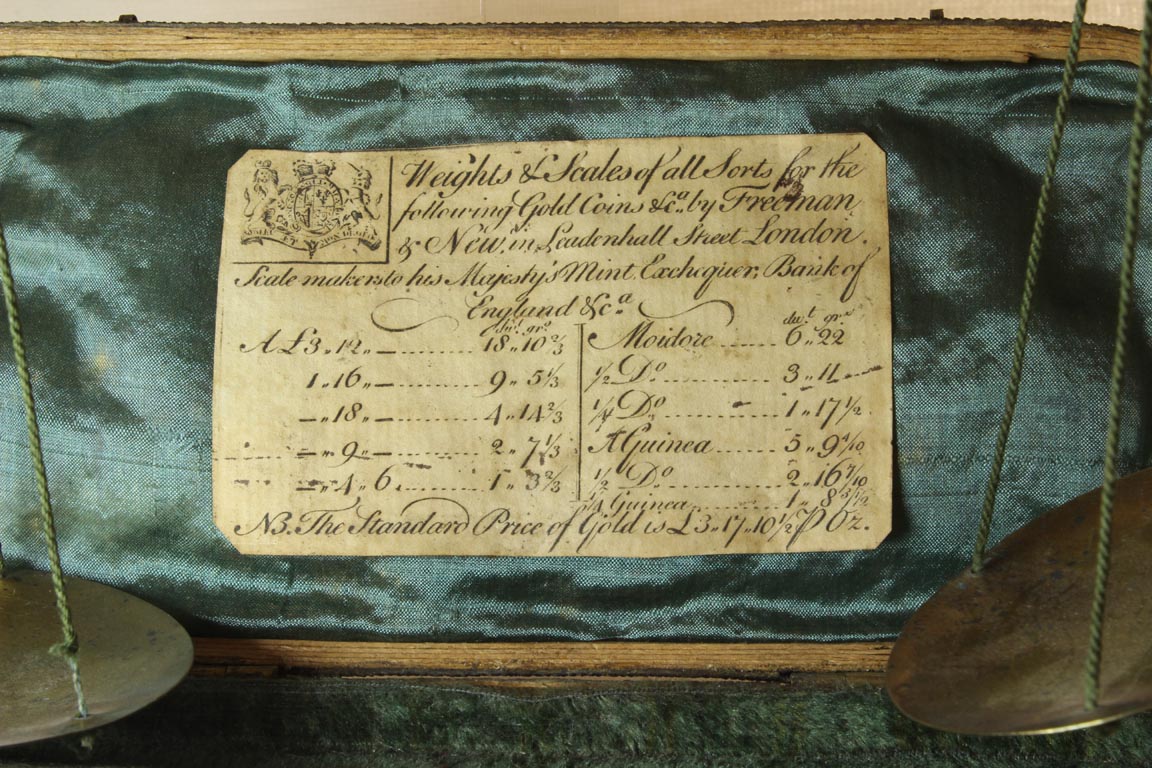 Weights & Scales of all Sorts for the
following Gold Coins &cª. by Freeman
& New. in Leadenhall Street London.
Scale makers to his Majesty's Mint Exchequer, Bank of
England &cª.
dwt. grs
A £3 „ 12 „ — ........ 18 „ 10 2/3
1 „ 16 „ — ........ 9 „ 5 1/3
— „ 18 „ — ........ 4 „ 14 2/3
— „ 9 „ — ........ 2 „ 7 1/3
— „ 4 „ 6 ........ 1 „ 3 2/3
dwt. grs
Moidore ...... 6 „ 22
1/2 Do. ............ 3 „ 11
1/4 Do. ............ 1 „ 17 1/2
A Guinea ...... 5 „ 9 4/10
1/2 Do. ............ 2 „ 16 7/10
1/3 Guinea ........ 1 „ 8
NB. The Standard Price of Gold is £3 „ 17 „ 10 1/2 P Oz.